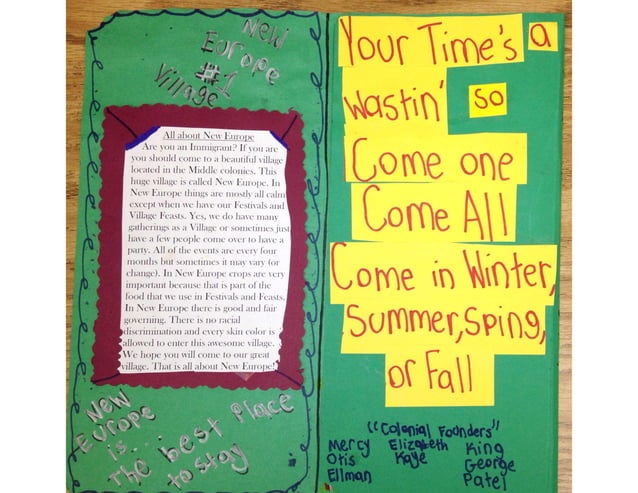 New
Europe
#1
Village
All about New Europe
Are you an Immigrant? If you are
you should come to a beautiful village
located in the Middle colonies. This
huge village is called New Europe. In
New Europe things are mostly all calm
except when we have our Festivals and
Village Feasts. Yes, we do have many
gatherings as a Village or sometimes just
have a few people come over to have a
party. All of the events are every four
months but sometimes it may vary (or
change). In New Europe crops are very
important because that is part of the
food that we use in Festivals and Feasts.
In New Europe there is good and fair
governing. There is no racial
discrimination and every skin color is
allowed to enter this awesome village.
We hope you will come to our great
village. That is all about New Europe!
New
Europe
is...
The best Place
to stay
Your Time's a
Wastin' so
Come one
Come All
Come in Winter,
Summer, Sping,
or Fall
"Colonial Foonders"
Mercy Otis Ellman
Elizabeth Kaye
King George Patel